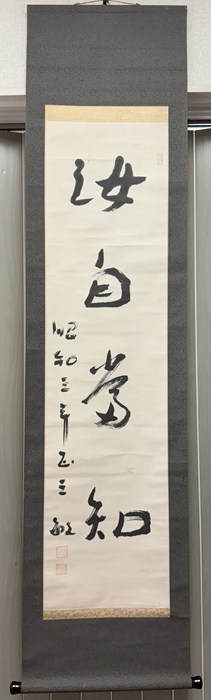 汝自當知
昭和三年正三敏